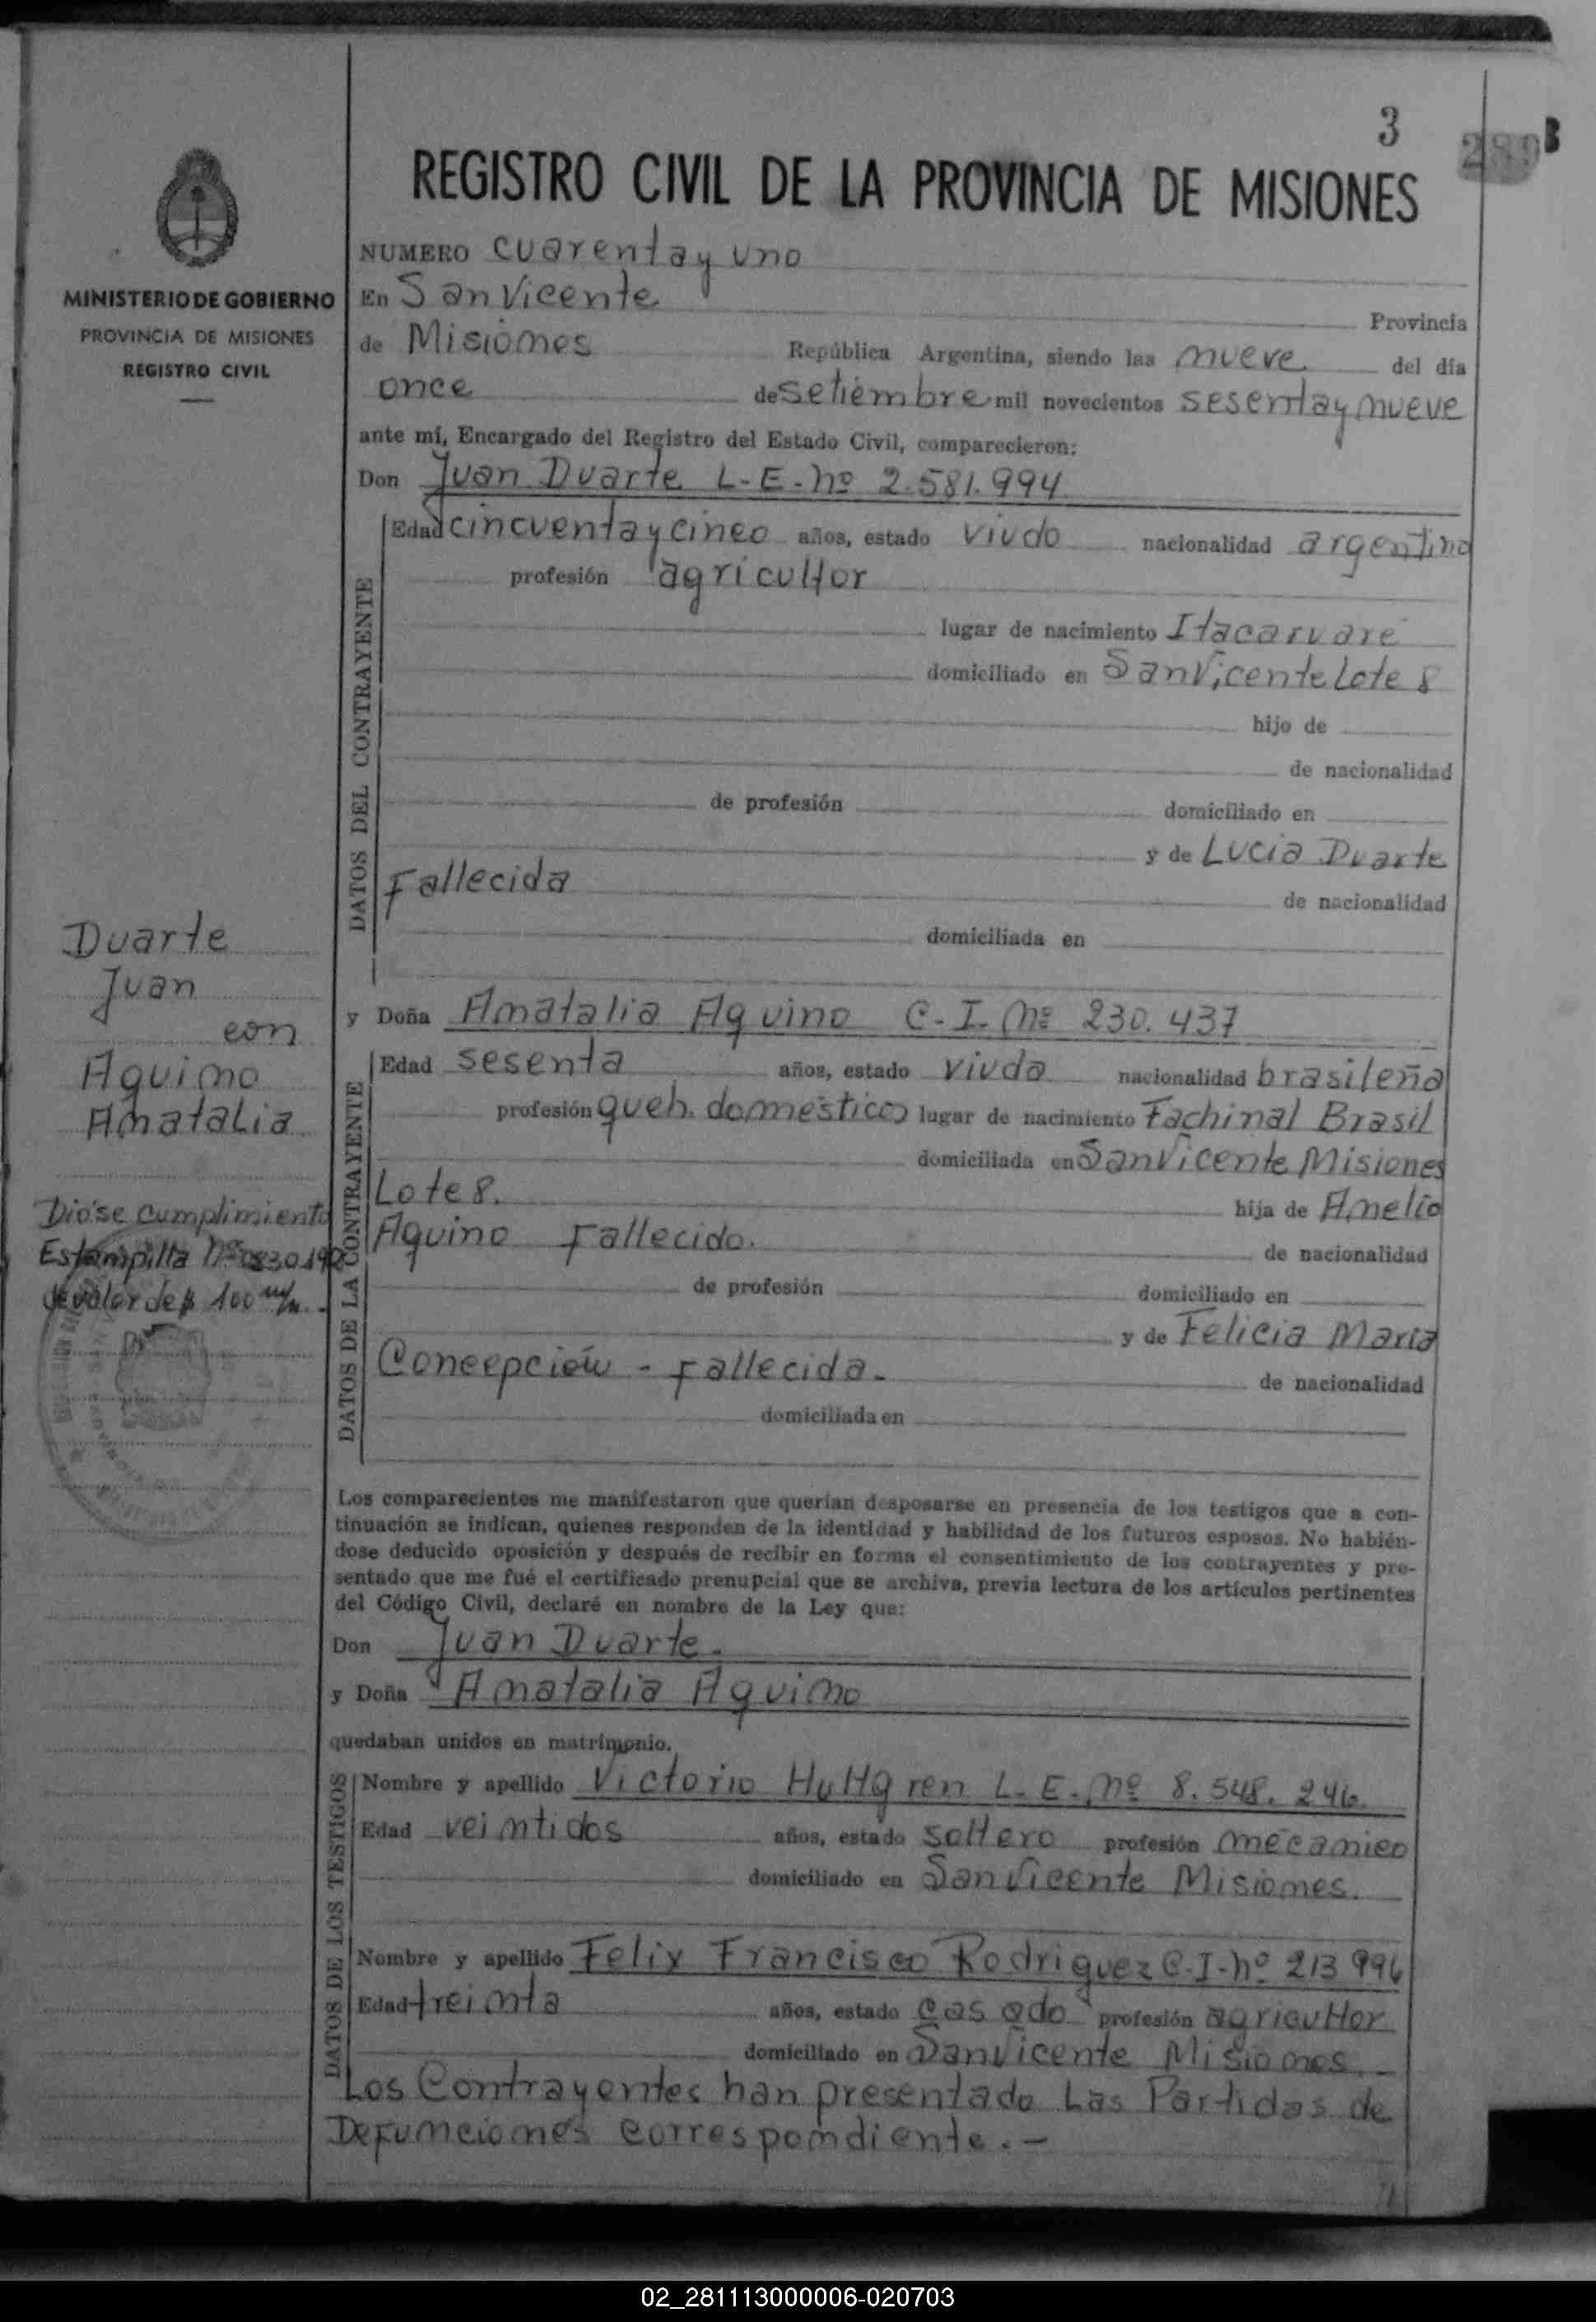 3
289 B
REGISTRO CIVIL DE LA PROVINCIA DE MISIONES
MINISTERIO DE GOBIERNO
PROVINCIA DE MISIONES
REGISTRO CIVIL
NUMERO cuarenta y uno
En San Vicente Provincia
de Misiones República Argentina, siendo las nueve del día
once de setiembre mil novecientos sesenta y nueve
ante mí, Encargado del Registro del Estado Civil, comparecieron:
Don Juan Duarte L-E-nº 2.581.994
DATOS DEL CONTRAYENTE
Edad cincuenta y cinco años, estado viudo nacionalidad argentino
profesión agricultor
lugar de nacimiento Itacaruaré
domiciliado en San Vicente Lote 8
hijo de
de nacionalidad
de profesión domiciliado en
y de Lucia Duarte
Fallecida de nacionalidad
domiciliada en
Duarte
Juan
con
Aquino
Anatalia
y Doña Anatalia Aquino C-I-Nº 230.437
DATOS DE LA CONTRAYENTE
Edad sesenta años, estado viuda nacionalidad brasileña
profesión queh. domésticos lugar de nacimiento Fachinal Brasil
domiciliada en San Vicente Misiones
Lote 8. hija de Amelio
Aquino Fallecido. de nacionalidad
de profesión domiciliado en
y de Felicia Maria
Concepción - Fallecida. de nacionalidad
domiciliada en
Dióse cumplimiento
Estampilla Nº
de valor de $ 100 m/n.
Los comparecientes me manifestaron que querían desposarse en presencia de los testigos que a con-
tinuación se indican, quienes responden de la identidad y habilidad de los futuros esposos. No habién-
dose deducido oposición y después de recibir en forma el consentimiento de los contrayentes y pre-
sentado que me fué el certificado prenupcial que se archiva, previa lectura de los artículos pertinentes
del Código Civil, declaré en nombre de la Ley que:
Don Juan Duarte.
y Doña Anatalia Aquino
quedaban unidos en matrimonio.
DATOS DE LOS TESTIGOS
Nombre y apellido Victorio Huttgren L-E-Nº 8.548.246
Edad veintidos años, estado soltero profesión mecanico
domiciliado en San Vicente Misiones.
Nombre y apellido Felix Francisco Rodriguez C-I-nº 213 996
Edad treinta años, estado casado profesión agricultor
domiciliado en San Vicente Misiones.
Los Contrayentes han presentado Las Partidas de
Defunciones correspondiente.-
02_281113000006-020703